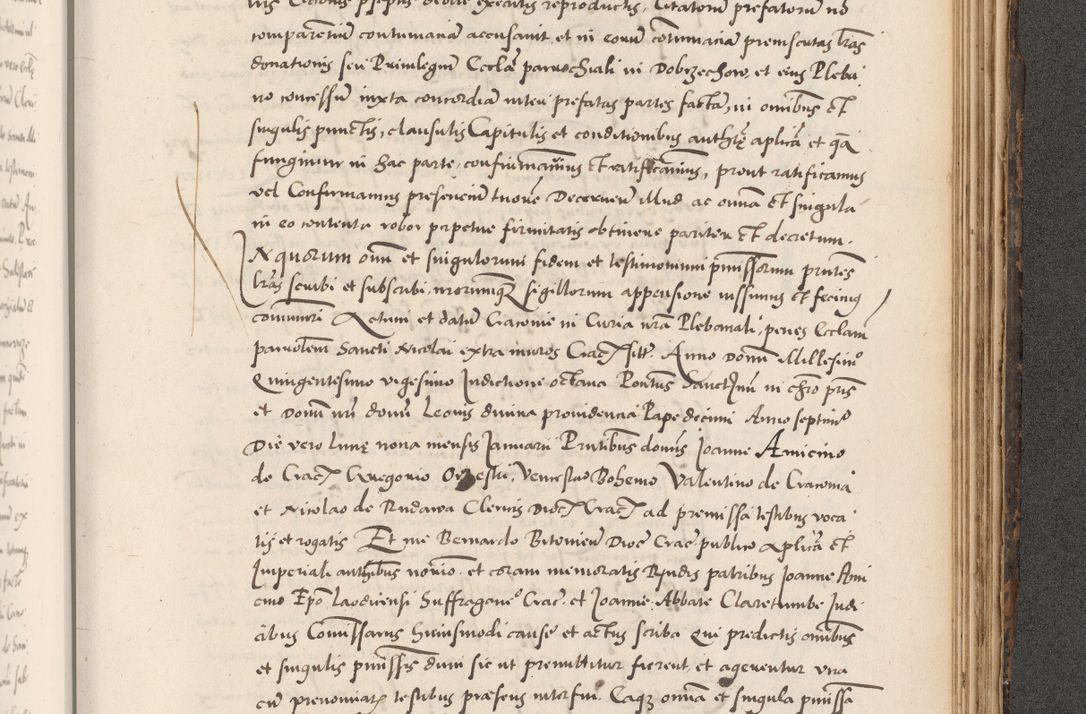 comparentiũ contumaciã accusavit et in eorũ cõtumaciã preinscutas lras
donationis seu Privilegiũ Eccłae parrochiali in Dobrzechow, et eius Pleba
no concessũ iuxta concordiã inter prefatas partes factã, in omibus et
singulis punctis, clausulis Capitulis et conditionibus authte aplica et qa
fungimur in hac parte, confirmavimus et ratificavimus, prout ratificamus
vel Confirmamus presenciũ tenore Decernen illud ac omnia et singula
in eo contenta robor perpetue firmitatis obtinere pariter et decretum.
In quorum omi et singulorum fidem et testimonium pmissorum pntes
lras scribi et subscribi, nrorumq sigillorum appensione iussimus et fecimus
comuniri Actum et datũ Cracovie in Curia nra Plebanali, penes Ecclam
parrochiem Sancti Nicolai extra muros Crac sitt. Anno Domi Millesimo
Quingentesimo vigesimo Indictione octava Pontus Sanctmi in chro pris
et Domi nri domi Leonis divina providencia Pape decimi Anno septimo
Die vero lunę nona mensis Januarii Pntibus domis Joanne Amicino
de Crac Gregorio Venceslao Bohemo Valentino de Cracovia
et Nicolao de Rudawa Clericis Dioc Crac ad premissa testibus voca
tis et rogatis Et me Bernardo Bitomien Dioc Crac publico Aplica et
Imperiali authtibus notario, et coram memoratis Rndis patribus Joanne Ami
cino Epo Laodicensi Suffraganeo Crac et Joanne Abbate Claretumbe Judi
cibus Comissariis huiusmodi cause et actus scriba Qui predictis omibus
et singulis pmissis dum sic ut premittitur fierent et agerentur una
cũ prenominatis testibus praesens interfui. Eaq omia et singula pmissa